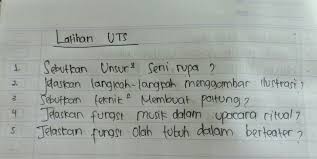 Latihan UTS
1 Sebutkan Unsur² Seni rupa ?
2 Jelaskan langkah-langkah menggambar ilustrasi ?
3 Sebutkan teknik² Membuat patung ?
4 Jelaskan fungsi musik dalam upacara ritual ?
5 Jelaskan fungsi olah tubuh dalam berteater ?